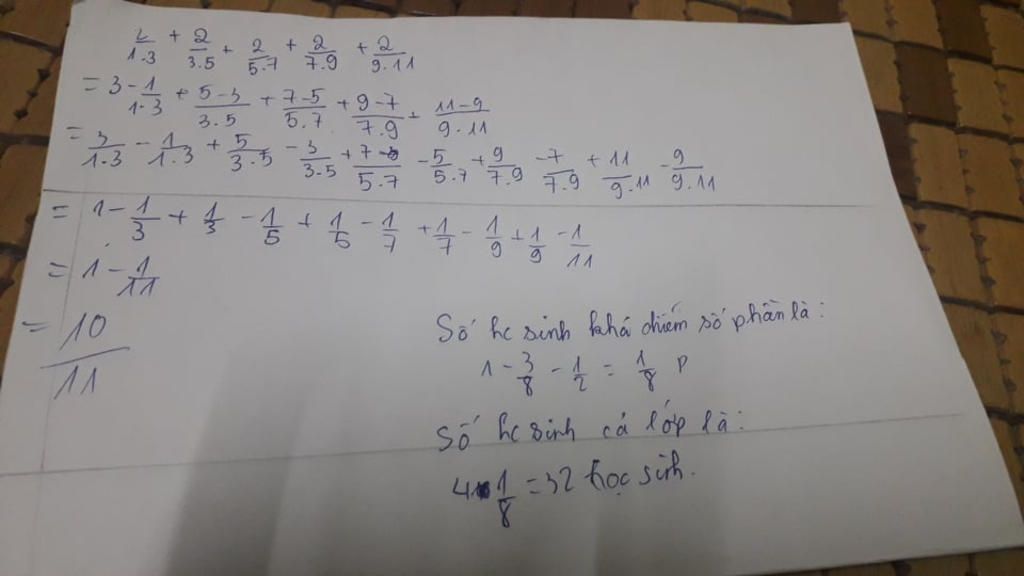 2/1.3 + 2/3.5 + 2/5.7 + 2/7.9 + 2/9.11
= 3-1/1.3 + 5-3/3.5 + 7-5/5.7 + 9-7/7.9 + 11-9/9.11
= 3/1.3 - 1/1.3 + 5/3.5 - 3/3.5 + 7/5.7 - 5/5.7 + 9/7.9 - 7/7.9 + 11/9.11 - 9/9.11
= 1 - 1/3 + 1/3 - 1/5 + 1/5 - 1/7 + 1/7 - 1/9 + 1/9 - 1/11
= 1 - 1/11
= 10/11
Số hc sinh khá chiếm số phần là:
1 - 3/8 - 1/2 = 1/8 P
Số hc sinh cả lớp là:
4 1/8 = 32 học sinh.